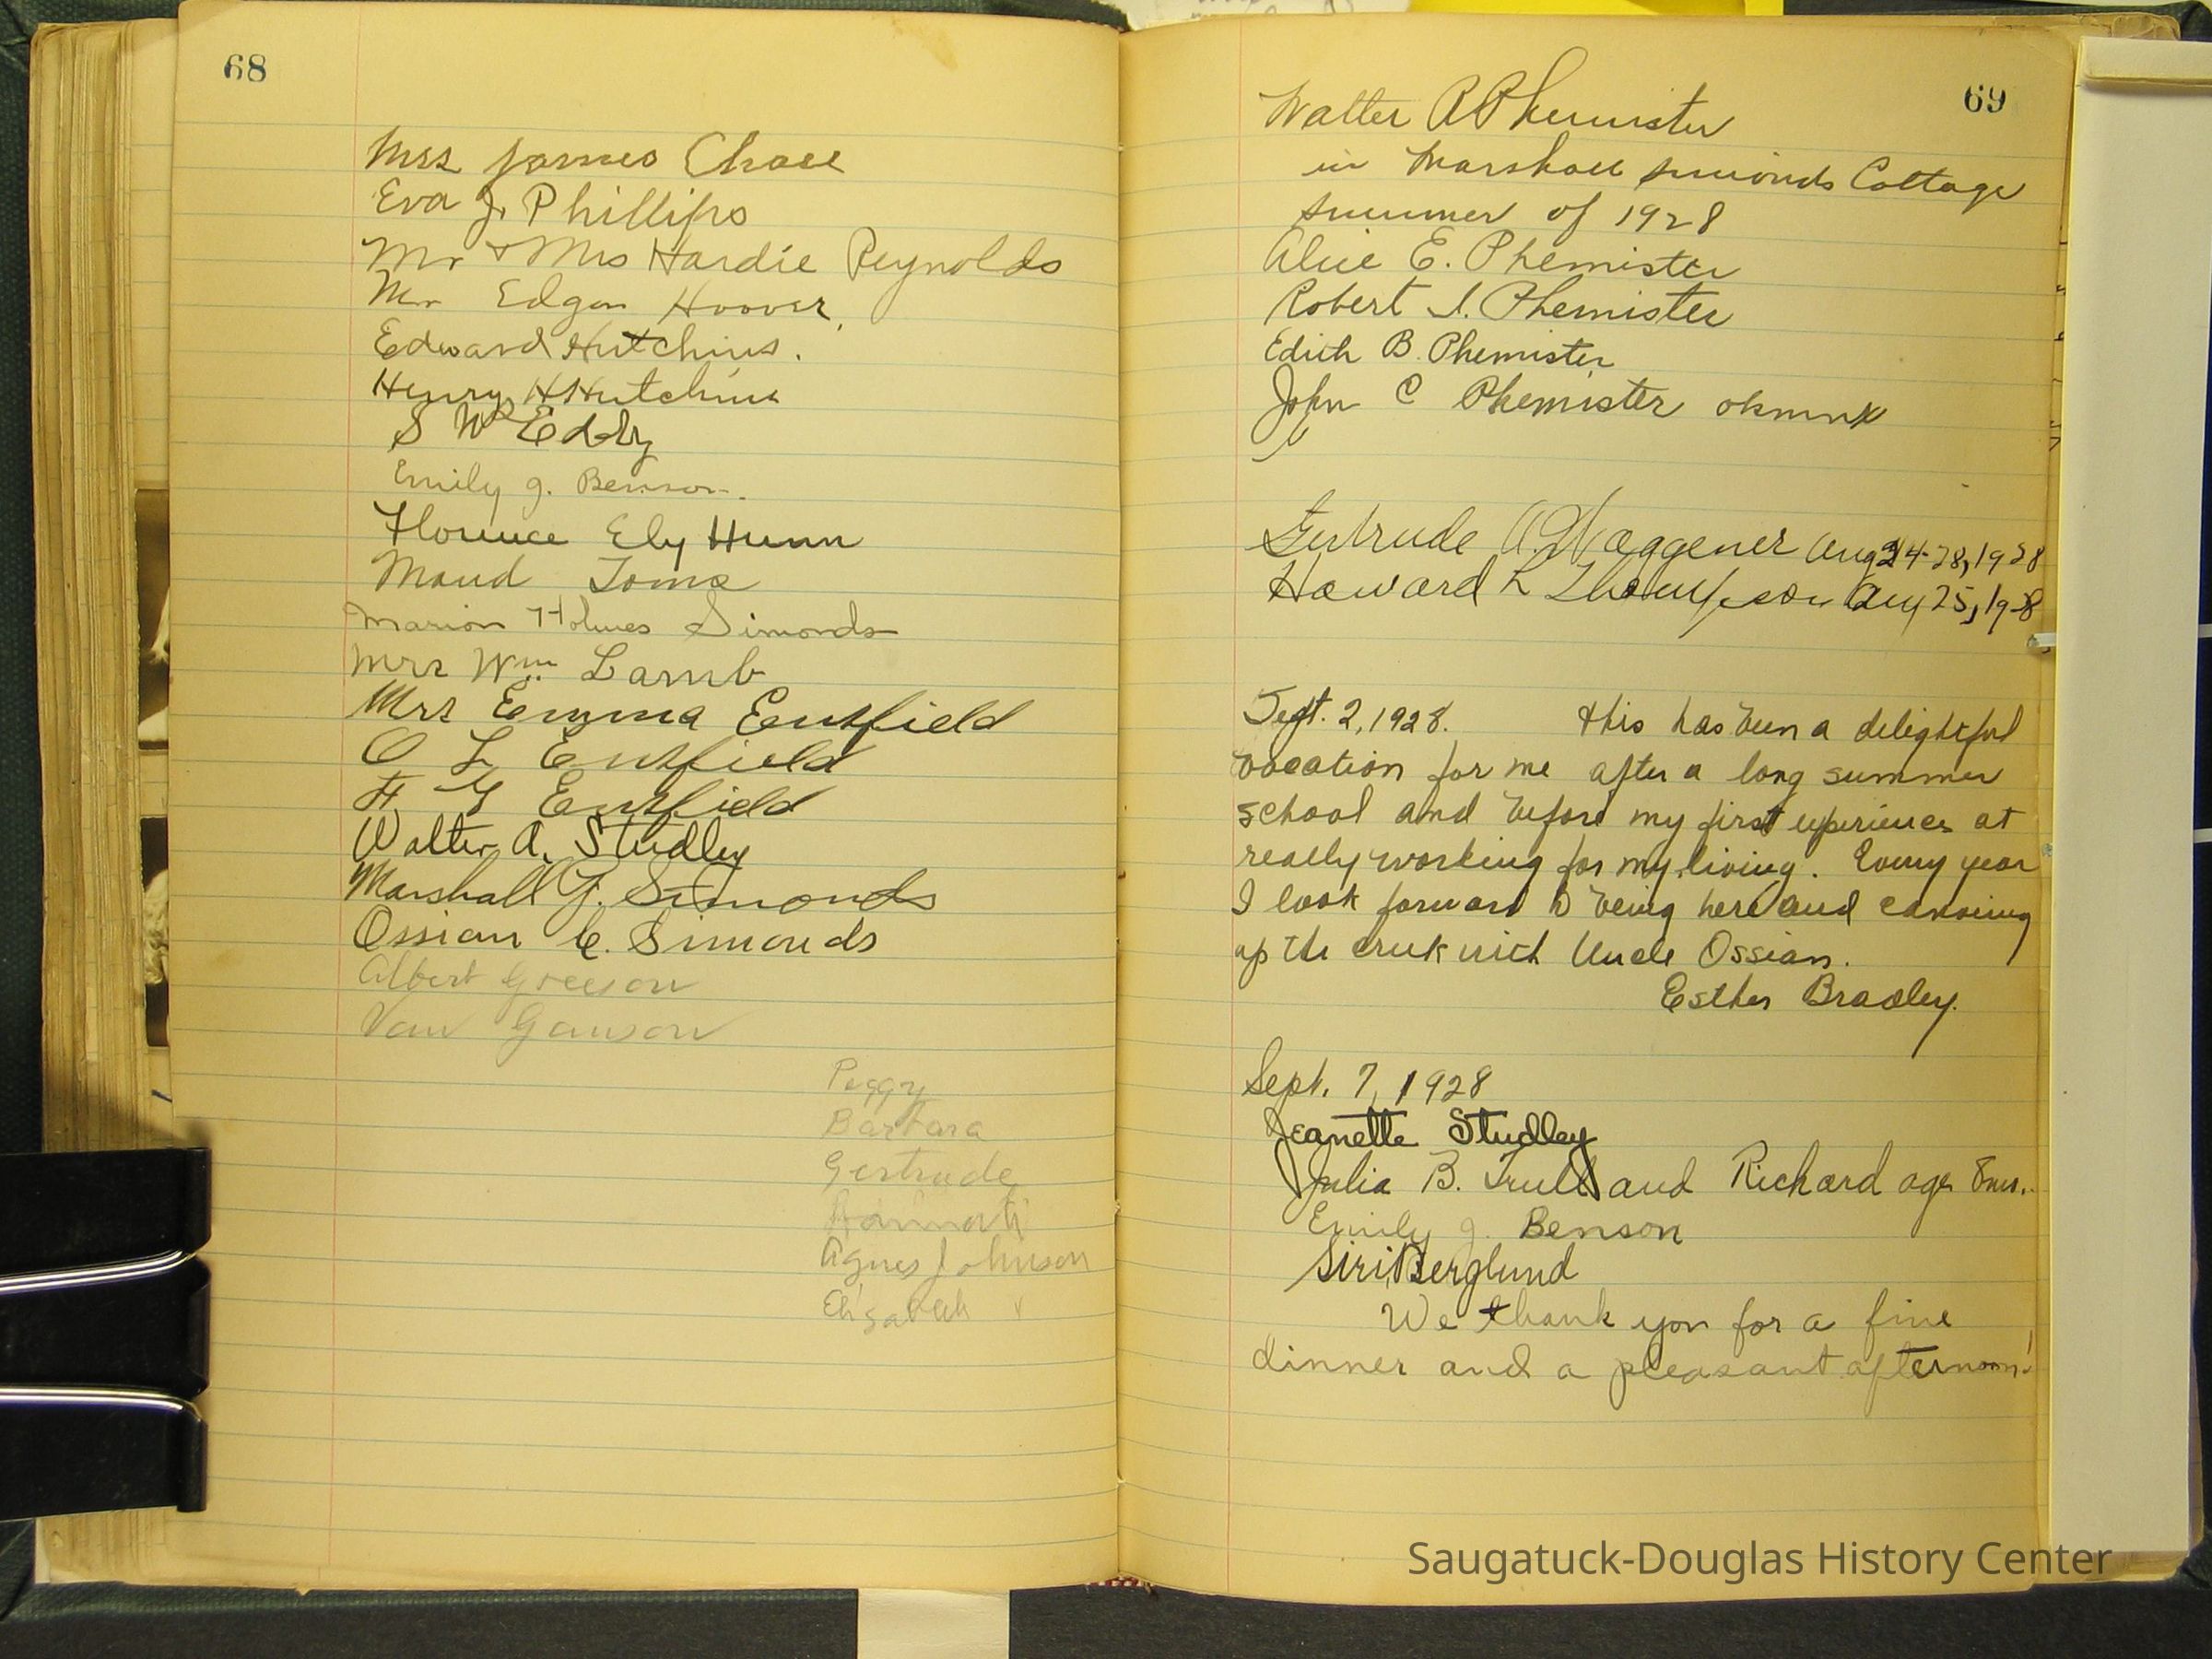 68
Mrs James Chase
Eva J. Phillips
Mr & Mrs Hardie Reynolds
Mr Edgar Hoover.
Edward Hutchins.
Henry H Hutchins
S Wr Eddy
Emily J. Benson.
Florence Ely Hunn
Maud Toms
Marion Holmes Simonds
Mrs Wm Lamb
Mrs Emma Entfield
O L Entfield
F. G Entfield
Walter A. Studley
Marshall G. Simonds
Ossian C. Simonds
Albert Greeson
Van Gawson
Peggy
Barbara
Gertrude
Agnes Johnson
Elisabeth "
69
Walter A Phemister
in Marshall Simonds Cottage
summer of 1928
Alice E. Phemister
Robert I. Phemister
Edith B. Phemister
John C Phemister okmnx
Gertrude A. Waggener Aug 24-28, 1928
Howard L Thompson Aug 25, 1928
Sept. 2, 1928. This has been a delightful
vacation for me after a long summer
school and before my first experiences at
really working for my living. Every year
I look forward to being here and canoeing
up the creek with Uncle Ossian.
Esther Bradley.
Sept. 7, 1928
Jeanette Studley
Julia B. Trull and Richard age 8 mos.
Emily J. Benson
Siri Berglund
We thank you for a fine
dinner and a pleasant afternoon!
Saugatuck-Douglas History Center